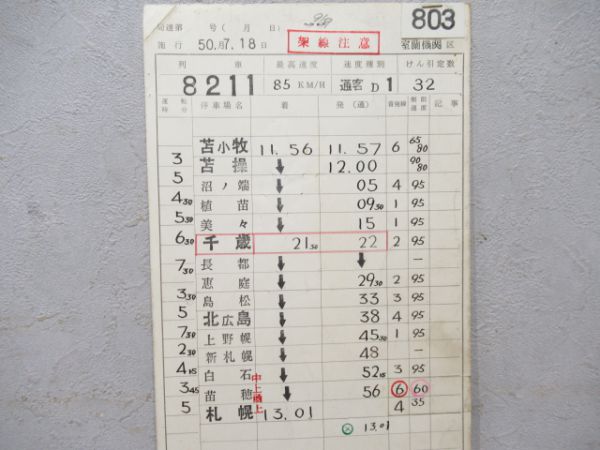 局達第 号(月 日)
803
施行 50.月7.18日
架線注意
室蘭機関区
列車 最高速度 速度種別 けん引定数
8211 85 KM/H 通客D1 32
運転時分 停車場名 着 発(通) 着発線 制限速度 記事
苫小牧 11.56 11.57 6 65 80
3
苫操 ↓ 12.00 90 80
5
沼ノ端 ↓ 05 4 95
4 30
植苗 ↓ 09 30 1 95
5 30
美々 ↓ 15 1 95
6 30
千歳 21 30 22 2 95
長都 ↓ ↓ –
7 30
恵庭 ↓ 29 30 2 95
3 30
島松 ↓ 33 3 95
5
北広島 ↓ 38 4 95
7 30
上野幌 ↓ 45 30 1 95
2 30
新札幌 ↓ 48 –
4 15
白石 ↓ 52 15 3 95
3 45
中上
苗穂 ↓ 56 6 60
上
5
札幌 13.01 4 35
13.01